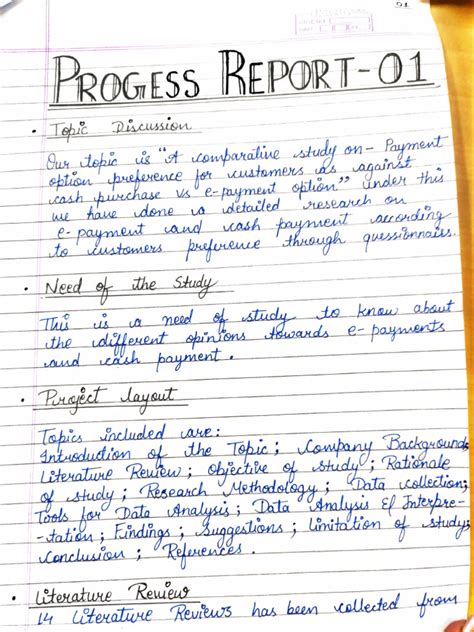 01
PROGESS REPORT-01
• Topic Discussion
Our topic is "A comparative study on- Payment
option preference for customers as against
cash purchase vs e-payment option" under this
we have done a detailed research on
e-payment and cash payment according
to customers preference through quessionnaiss.
• Need of the Study
This is a need of study to know about
the different opinions towards e-payments
and cash payment.
• Project layout
Topics included are:
Introduction of the Topic; Company Background;
Literature Review; Objective of study; Rationale
of study; Research Methodology; Data collection;
Tools for Data Analysis; Data Analysis & Interpre-
-tation; Findings; Suggestions; limitation of study;
Conclusion; References.
• Literature Review
14 Literature Reviews has been collected from